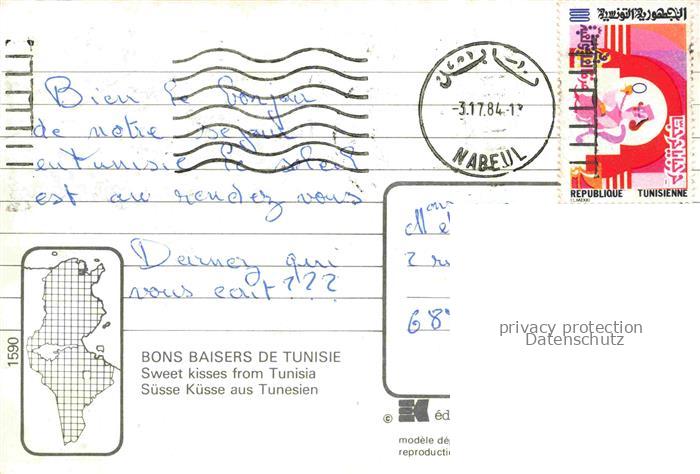 الجمهورية التونسية
-3.17.84-1
NABEUL
REPUBLIQUE TUNISIENNE
Bien le bonjour
de notre sejour
en tunisie le soleil
est au rendez vous
Darnez qui
vous ecit ???
2 r
68
privacy protection
Datenschutz
1590
BONS BAISERS DE TUNISIE
Sweet kisses from Tunisia
Süsse Küsse aus Tunesien
© éd
modèle dé
reproducti